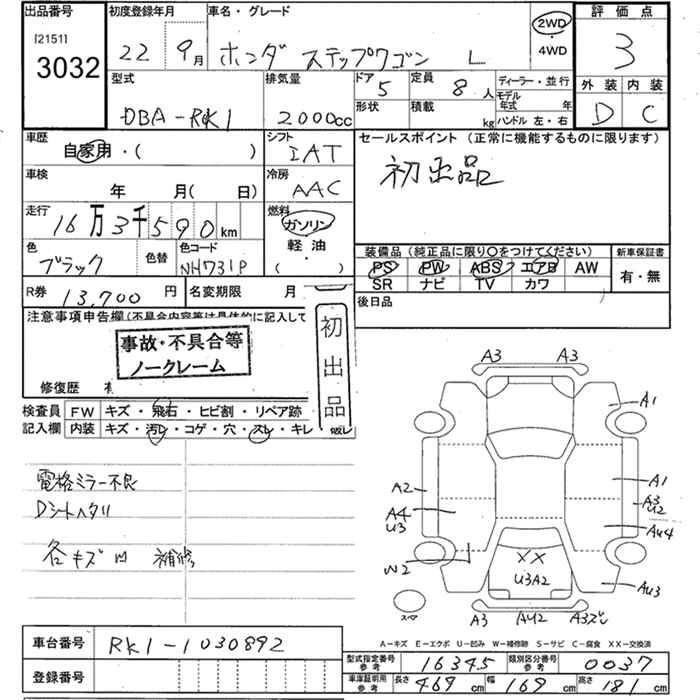 出品番号 初度登録年月 車名・グレード 評価点
[2151]
3032
22 9月 ホンダ ステップワゴン L
2WD
・
4WD
3
型式 排気量 ドア 5 定員 8 人 ディーラー・並行
外装 内装
形状 積載 kg モデル年式 年
ハンドル 左・右
DBA-RK1 2000cc
D C
車歴 シフト セールスポイント (正常に機能するものに限ります)
自家用・( ) IAT
初出品
車検 冷房
年 月( 日) AAC
走行 燃料
16万3千590km ガソリン
軽油
( )
色 色替 色コード
ブラック NH731P
装備品 (純正品に限り○をつけてください) 新車保証書
PS PW ABS エアB AW 有・無
SR ナビ TV カワ
R券 13,700 円 名変期限 月
後日品
注意事項申告欄(不具合内容等は具体的に記入して
事故・不具合等
ノークレーム
初出品
修復歴
検査員 FW キズ・飛石・ヒビ割・リペア跡
記入欄 内装 キズ・汚レ・コゲ・穴・スレ・キレ・
電格ミラー不良
Dシートヘタリ
各キズ凹 補修
A3 A3
A1
A2 A1
A3
U2
A4
U3
AU4
W2
XX
U3A2
AU3
スペア
A3 AU2 A3ズレ
A-キズ E-エクボ U-凹み W-補修跡 S-サビ C-腐食 XX-交換済
車台番号 RK1-1030892
型式指定番号 参考 16345 類別区分番号 参考 0037
登録番号
車庫証明用 参考 長さ 469 cm 幅 169 cm 高さ 181 cm